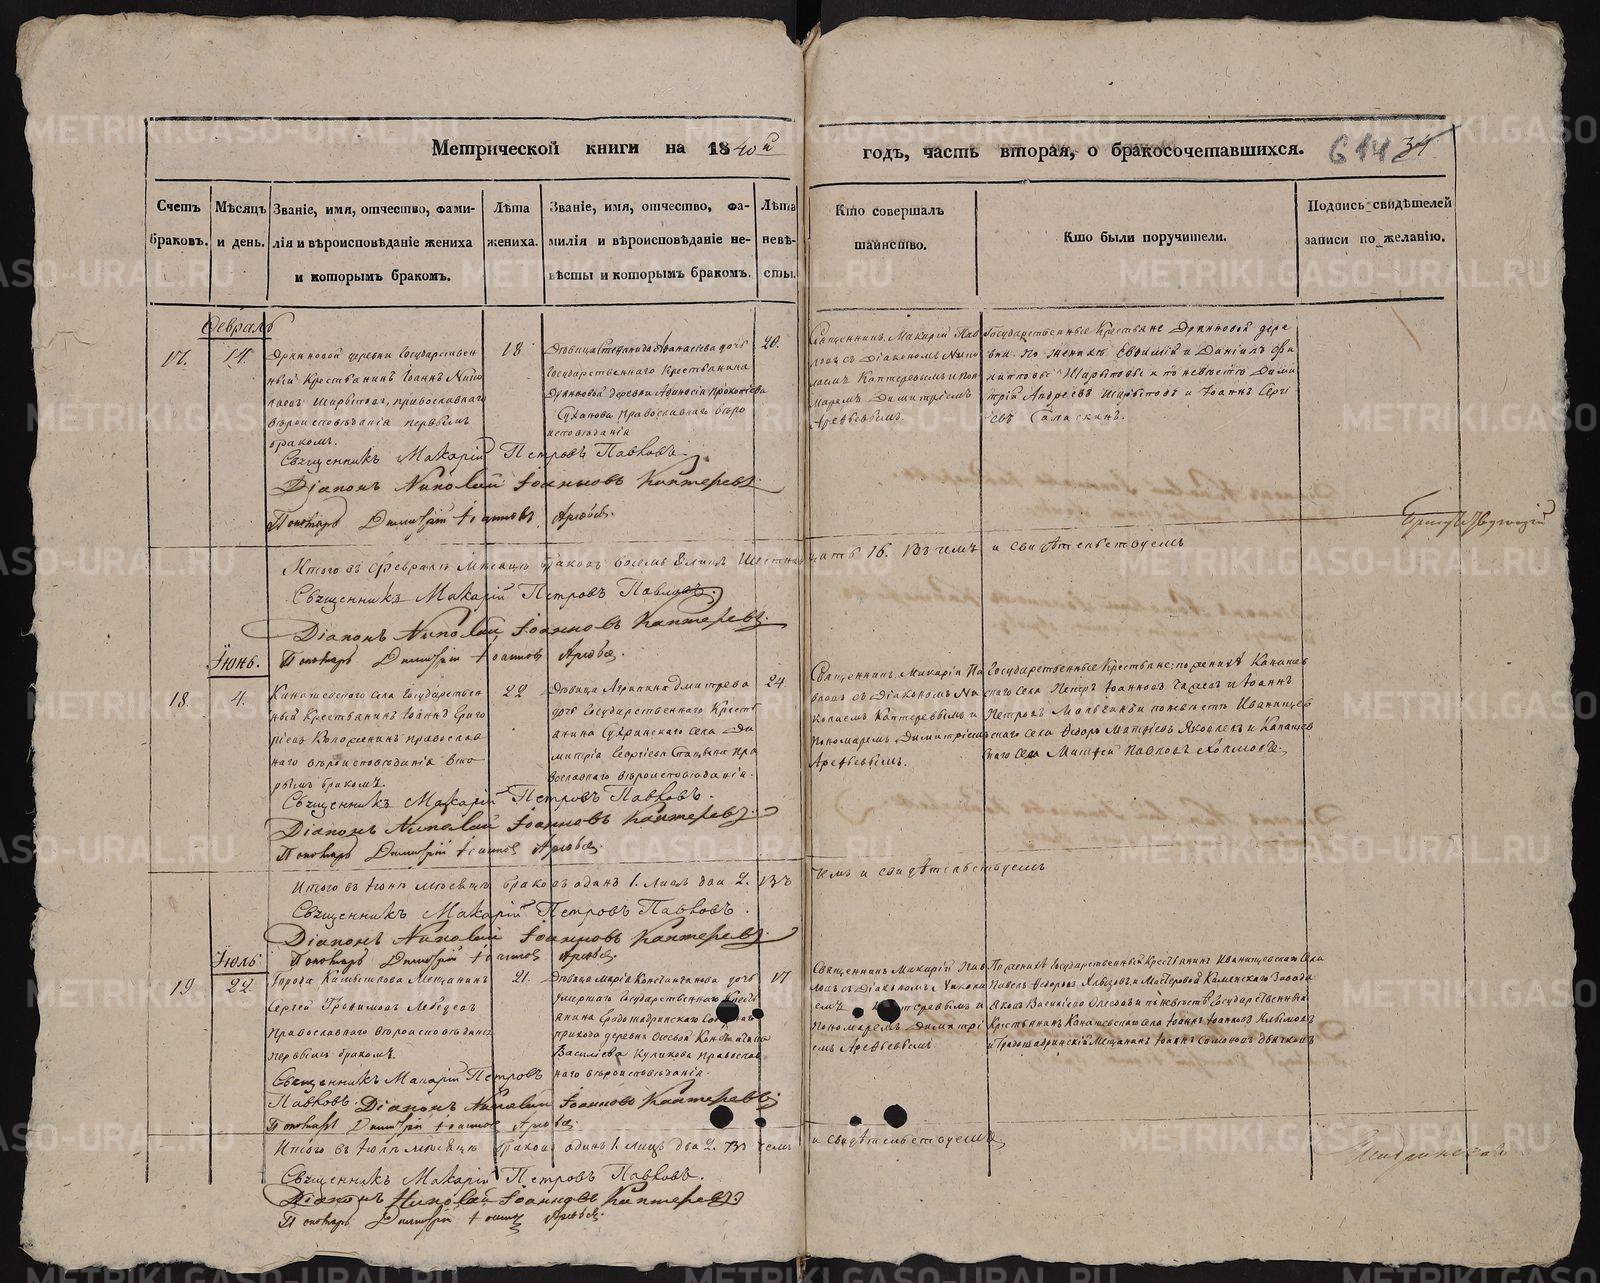 Метрической книги на 1840й
годъ, часть вторая, о бракосочетавшихся.
614 34
Счетъ браковъ.
Мѣсяцъ и день.
Званіе, имя, отчество, фами-
лія и вѣроисповѣданіе жениха
и которымъ бракомъ.
Лѣта жениха.
Званіе, имя, отчество, фа-
милія и вѣроисповѣданіе не-
вѣсты и которымъ бракомъ.
Лѣта невѣ-
сты.
Кто совершалъ
таинство.
Кто были поручители.
Подпись свидѣтелей
записи по желанію.
Февраль
17.
14.
деревни Государствен
ный Крестьянинъ Іоаннъ Нико
лаевъ Шарыповъ, православнаго
вѣроисповѣданія первымъ
бракомъ.
18
Дѣвица Степанида Афанасіева дочь
Государственнаго Крестьянина
деревни Афанасія Прокопіева
Суханова Православнаго вѣро
исповѣданія
20.
Священникъ Макарій Пав
ловъ съ Діакономъ Нико
лаемъ Каптеревымъ и пон
маремъ Димитріемъ
Арефьевымъ.
Государственные Крестьяне дере
вни по женихѣ Евфимій и Даніилъ Фи
липповы Шарыповы и по невѣстѣ Дими
трій Андреевъ Шарыповъ и Іоаннъ Серги
евъ
Священникъ Макарій Петровъ Павловъ.
Діаконъ Николай Іоанновъ Каптеревъ.
Пономарь Димитрій Іоанновъ Арефьев.
Итого въ Февралѣ Мѣсяцѣ браковъ восемь 8 лицъ Шестнадцать 16. Въ чемъ и свидѣтельствуемъ
Священникъ Макарій Петровъ Павловъ.
Діаконъ Николай Іоанновъ Каптеревъ.
Пономарь Димитрій Іоаннов Арефьев.
Іюнь.
18.
4.
Канашевского села Государствен
ный Крестьянинъ Іоаннъ Григо
ріевъ православ
наго вѣроисповѣданія вто
рымъ бракомъ.
22
Дѣвица Агрипина Дмитрева
дочь Государственнаго Кресть
янина Сухринскаго села Ди
митрія Георгіева пра
вославнаго вѣроисповѣданія.
24
Священникъ Макарій Па
вловъ съ Діакономъ Ни
колаемъ Каптеревымъ и
пономаремъ Димитріемъ
Арефьевымъ.
Государственные Крестьяне: по женихѣ Канашев
скаго села Петръ Іоанновъ и Іоаннъ
Петровъ и по невѣстѣ Иванищев
скаго села Ѳедоръ Матвѣевъ Яковлевъ и Канашев
скаго села Матфей Павловъ
Священникъ Макарій Петровъ Павловъ.
Діаконъ Николай Іоанновъ Каптеревъ.
Пономарь Димитрій Іоаннов Арефьев.
Итого въ Іюнѣ мѣсяцѣ браковъ одинъ 1. лицъ два 2. Въ чемъ и свидѣтельствуемъ
Священникъ Макарій Петровъ Павловъ.
Діаконъ Николай Іоанновъ Каптеревъ.
Пономарь Димитрій Іоаннов Арефьев.
Іюль
19.
22
Города Камышлова Мещанинъ
Сергей Трофимовъ Лебедевъ
Православнаго вѣроисповѣданія
первымъ бракомъ.
21.
Дѣвица Марія Константинова дочь
умершаго Государственнаго Кресть
янина
прихода деревни Константина
Василіева Куликова православ
наго вѣроисповѣданія.
17
Священникъ Макарій Пав
ловъ съ Діакономъ Никола
емъ Каптеревымъ и
Пономаремъ Димитрі
емъ Арефьевымъ.
По женихѣ Государственный Крестьянинъ Иванищевскаго села
Павелъ Ѳедоровъ и Мастеровой Каменскаго завода
Яковъ Василіевъ и по невѣстѣ Государственный
Крестьянинъ Канашевскаго села Іоаннъ Іоанновъ
и Мещанинъ Іоаннъ
Священникъ Макарій Петровъ
Павловъ. Діаконъ Николай Іоанновъ Каптеревъ.
Пономарь Димитрій Іоаннов Арефьев
Итого въ Іюлѣ мѣсяцѣ браков одинъ 1. лицъ два 2. Въ чемъ и свидѣтельствуемъ
Священникъ Макарій Петровъ Павловъ.
Діаконъ Николай Іоанновъ Каптеревъ.
Пономарь Димитрій Іоанн Арефьев.
METRIKI.GASO-URAL.RU